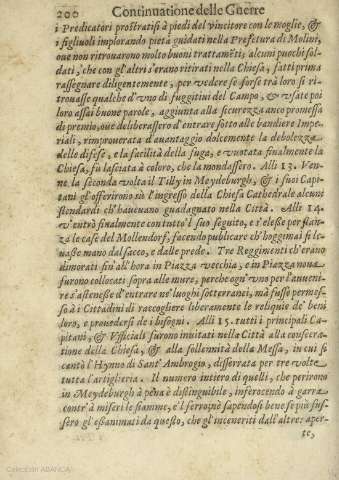 200 Continuatione delle Guerre
i Predicatori prostratisi à piedi del vincitore con le moglie, &
i figliuoli implorando pietà guidati nella Prefetura di Molini,
oue non ritrouarono molto buoni trattamẽti; alcuni puochi sol-
dati, che con gl'altri s'erano ritirati nella Chiesa, fatti prima
rassegnare diligentemente, per vedere se forse trà loro si ri-
trouasse qualche d'vno di fuggitiui del Campo, & vsate poi
loro assai buone parole, aggiunta alla sicurezza anco promessa
di premio, oue deliberassero d'entrare sotto alle bandiere Impe-
riali, rimprouerata d'auantaggio dolcemente la debolezza
delle difese, e la facilità della fuga, e vuotata finalmente la
Chiesa, fù lasciata à coloro, che la mondassero. Alli 13. Ven-
ne la seconda volta il Tilly in Meydeburgh, & i suoi Capi-
tani gl'offerirono sù l'ingresso della Chiesa Cathedrale alcuni
stendardi ch'haueuano guadagnato nella Città. Alli 14.
v'entrò finalmente con tutto'l suo seguito, e s'elesse per stan-
za le case del Mollendorf, facendo publicare ch'hoggimai si le-
uasse mano dal sacco, e dalle prede. Tre Regimenti ch'erano
dimorati fin'all'hora in Piazza vecchia, e in Piazza noua
furono collocati sopra alle mure, perche ogn'vno per l'auueni-
re s'astenesse d'entrare ne' luoghi sotterranei, mà fusse permes-
so à i Cittadini di raccogliere liberamente le reliquie de' beni
loro, e prouedersi de i bisogni. Alli 15. tutti i principali Ca-
pitani, & Vfficiali furono inuitati nella Città alla consecra-
tione della Chiesa, & alla sollennità della Messa, in cui si
cantò l'Hymno di Sant' Ambrogio, disserrata per tre volte
tutta l'artiglieria. Il numero intiero di quelli, che perirono
in Meydeburgh à pena è distinguibile, inferocendo à garra
contr'à miseri le fiamme, e'l ferro; nè sapendosi bene se più fus-
sero gl'essanimati da questo, che gl'inceneriti dall'altre: aper-
se,
Colección ABANCA